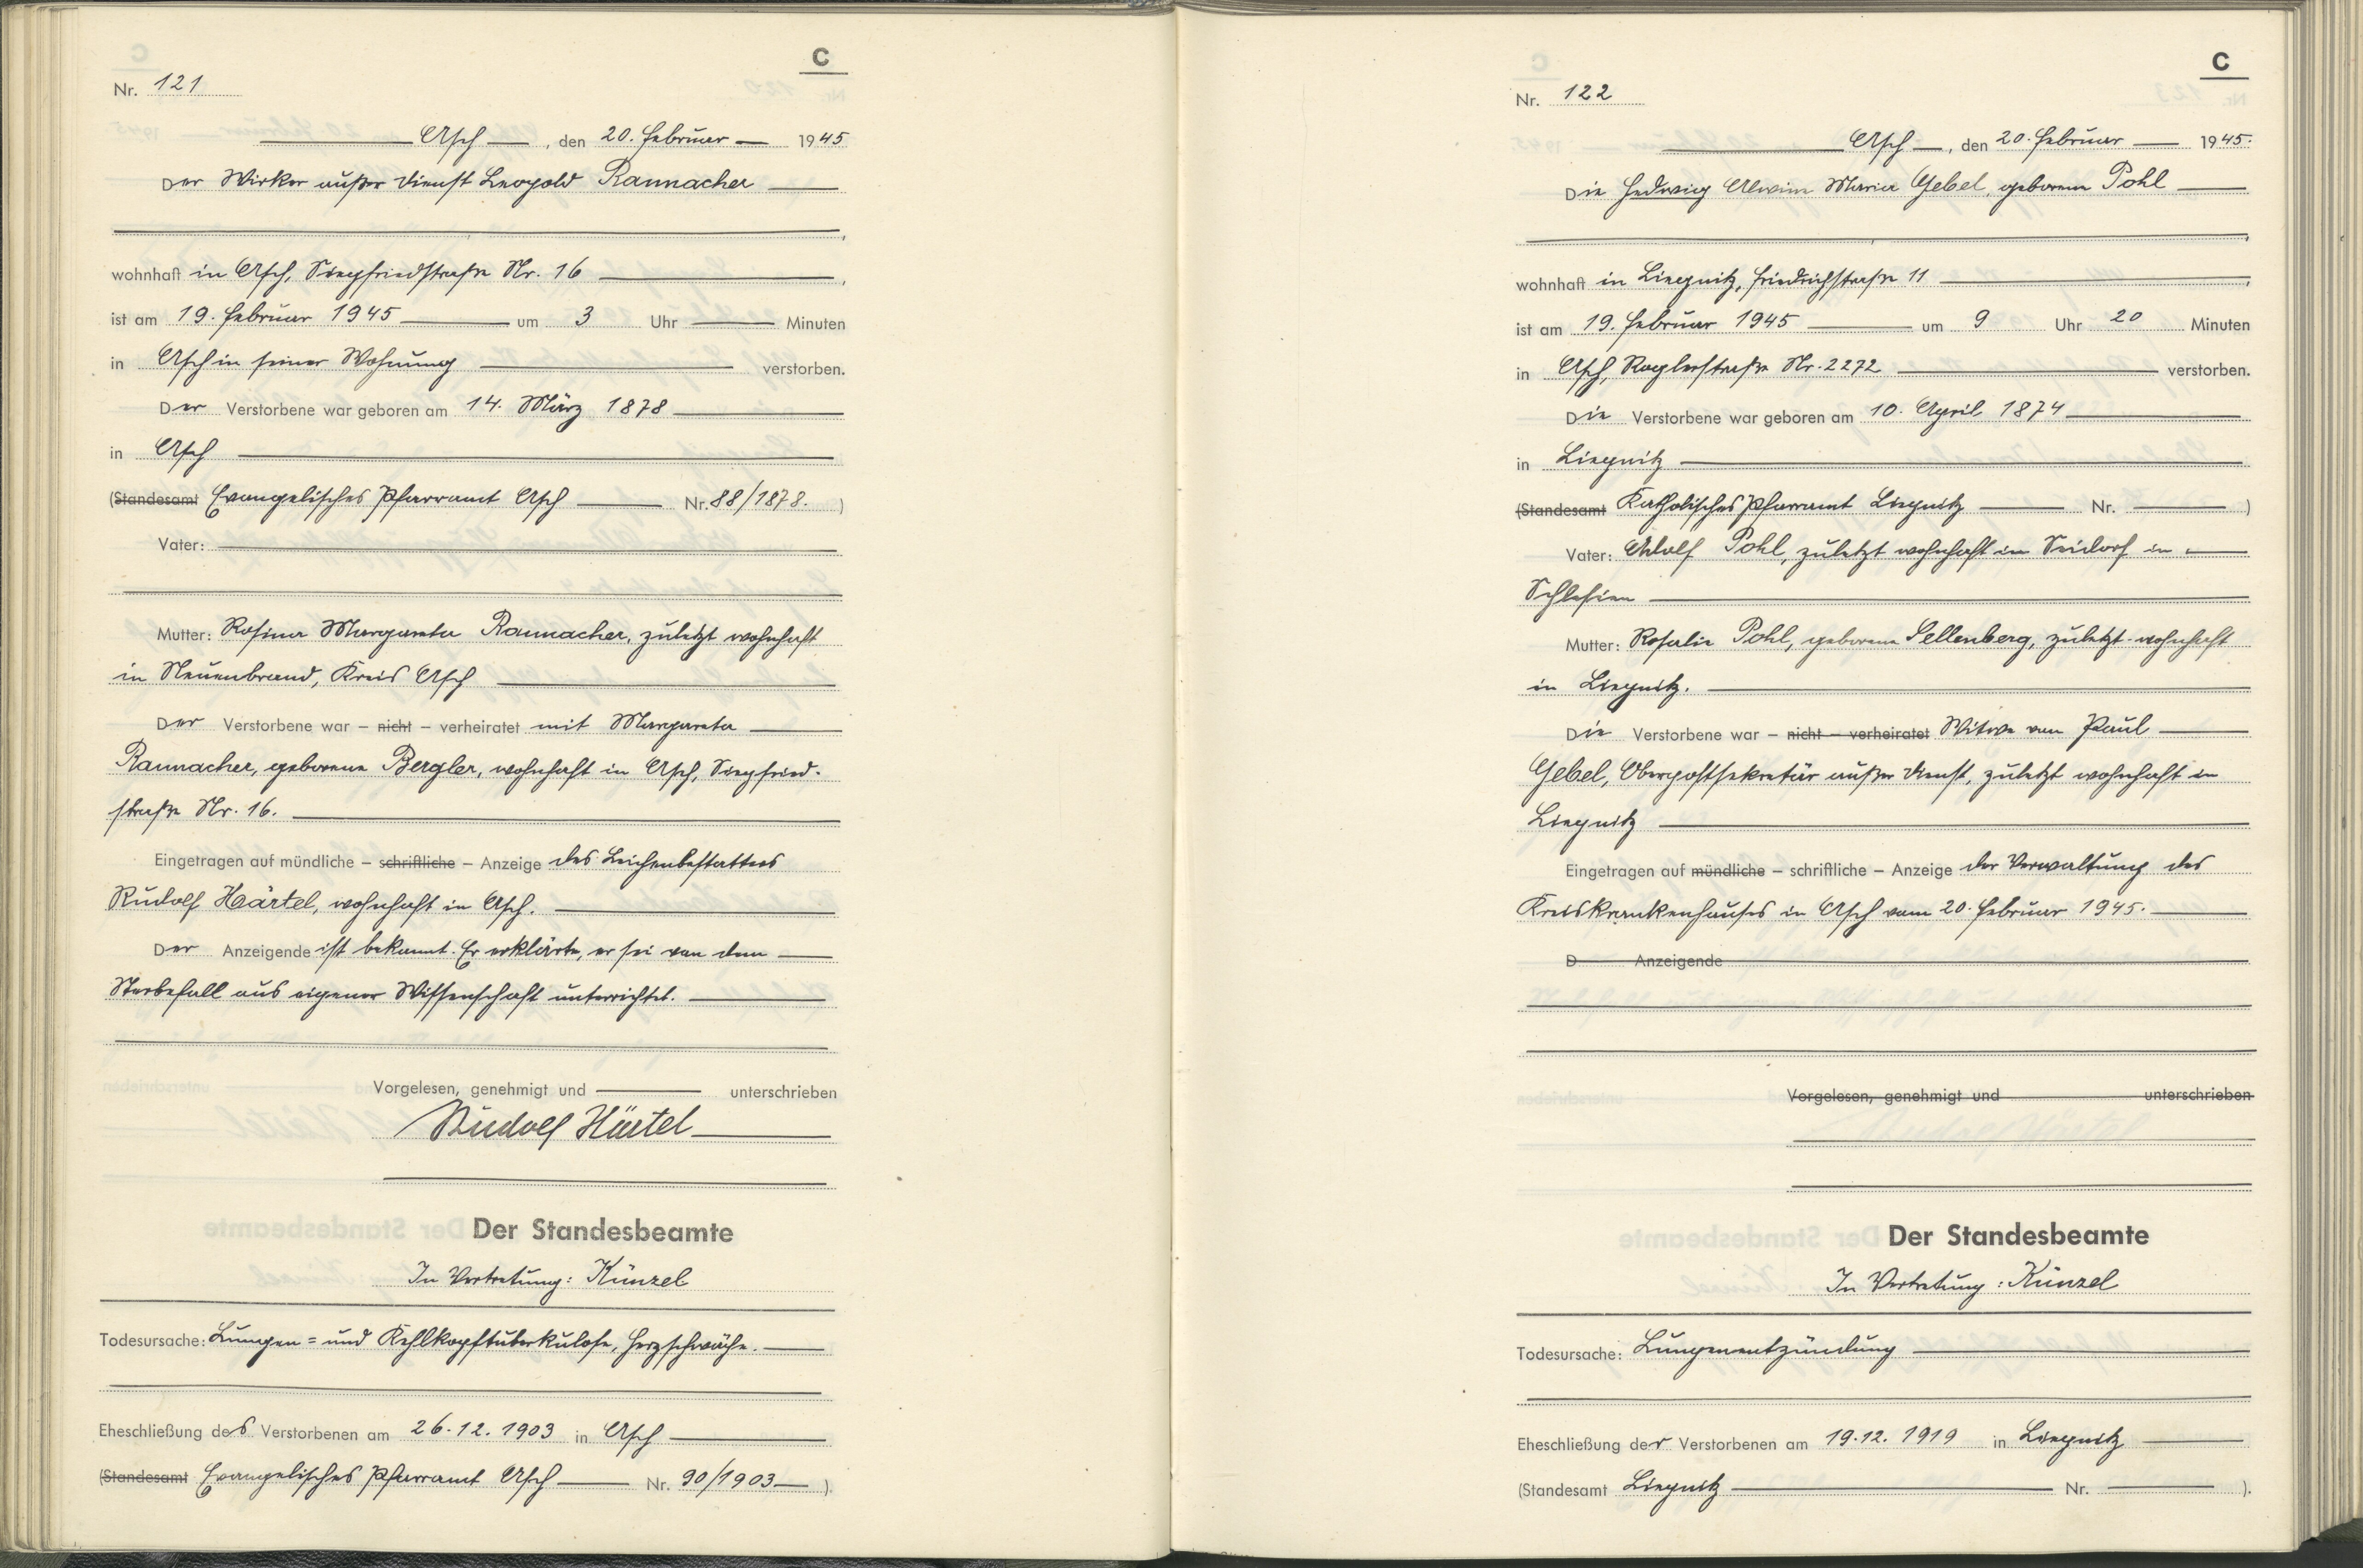 C
Nr. 121
Asch, den 20. Februar 1945
Der Wirker außer Dienst Leopold Rannacher
wohnhaft in Asch, Siegfriedstraße Nr. 16
ist am 19. Februar 1945 um 3 Uhr Minuten
in Asch in seiner Wohnung verstorben.
Der Verstorbene war geboren am 14. März 1878
in Asch
(Standesamt Evangelisches Pfarramt Asch Nr. 88/1878. )
Vater:
Mutter: Rosina Margareta Rannacher, zuletzt wohnhaft
in Neuenbrand, Kreis Asch
Der Verstorbene war – nicht – verheiratet mit Margareta
Rannacher, geborene Bergler, wohnhaft in Asch, Siegfried-
straße Nr. 16.
Eingetragen auf mündliche – schriftliche – Anzeige des Leichenbestatters
Rudolf Haärtel, wohnhaft in Asch.
Der Anzeigende ist bekannt. Er erklärte, er sei von dem
Sterbefall aus eigener Wissenschaft unterrichtet.
Vorgelesen, genehmigt und unterschrieben
Rudolf Härtel
Der Standesbeamte
In Vertretung: Künzel
Todesursache: Lungen= und Kehlkopftuberkulose, Herzschwäche.
Eheschließung des Verstorbenen am 26.12.1903 in Asch
(Standesamt Evangelisches Pfarramt Asch Nr. 90/1903 ).
C
Nr. 122
Asch, den 20. Februar 1945.
Die Hedwig Alwine Maria Gebel, geborene Pohl
wohnhaft in Liegnitz, Friedrichstraße 11
ist am 19. Februar 1945 um 9 Uhr 20 Minuten
in Asch, Roglerstraße Nr. 2272 verstorben.
Die Verstorbene war geboren am 10. April 1874
in Liegnitz
(Standesamt Katholisches Pfarramt Liegnitz Nr. )
Vater: Adolf Pohl, zuletzt wohnhaft in Seidorf in
Schlesien
Mutter: Rosalie Pohl, geborene Sellenberg, zuletzt wohnhaft
in Liegnitz.
Die Verstorbene war – nicht – verheiratet Witwe von Paul
Gebel, Oberpostsekretär außer Dienst, zuletzt wohnhaft in
Liegnitz
Eingetragen auf mündliche – schriftliche – Anzeige der Verwaltung des
Kreiskrankenhauses in Asch vom 20. Februar 1945.
D Anzeigende
Vorgelesen, genehmigt und unterschrieben
Der Standesbeamte
In Vertretung: Künzel
Todesursache: Lungenentzündung
Eheschließung der Verstorbenen am 19.12.1919 in Liegnitz
(Standesamt Liegnitz Nr. ).